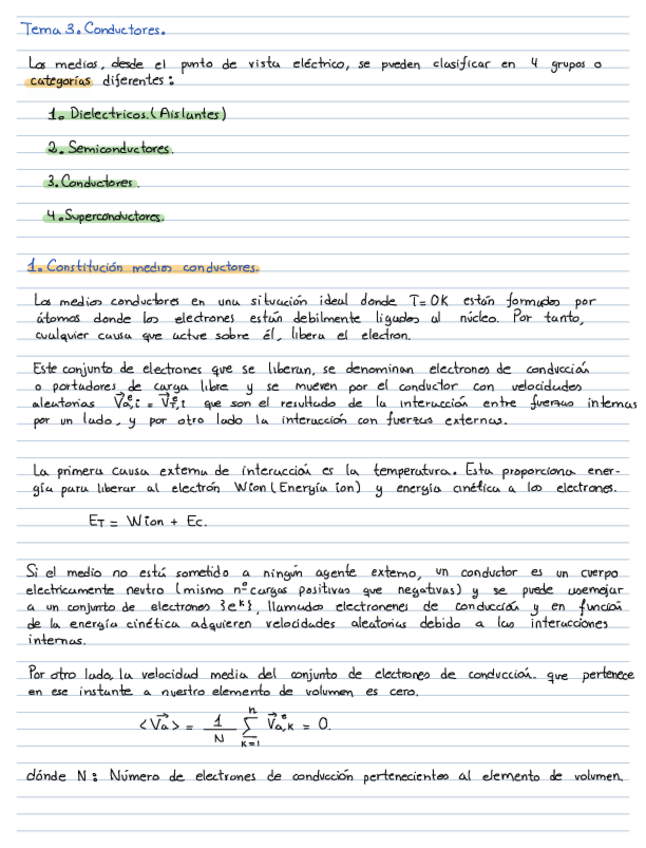 Tema 3. Conductores.
Los medios, desde el punto de vista eléctrico, se pueden clasificar en 4 grupos o
categorías diferentes:
1. Dielectricos. (Aislantes)
2. Semiconductores.
3. Conductores.
4. Superconductores.
1. Constitución medios conductores.
Los medios conductores en una situación ideal donde T=0K están formados por
átomos donde los electrones están debilmente ligados al núcleo. Por tanto,
cualquier causa que actue sobre él, libera el electron.
Este conjunto de electrones que se liberan, se denominan electrones de conducción
o portadores de carga libre y se mueven por el conductor con velocidades
aleatorias V⃗ᵉa,i = V⃗ᵉT,i que son el resultado de la interacción entre fuerzas internas
por un lado, y por otro lado la interacción con fuerzas externas.
La primera causa externa de interacción es la temperatura. Esta proporciona ener-
gía para liberar al electrón Wion (Energía ion) y energía cinética a los electrones.
ET = Wion + Ec.
Si el medio no está sometido a ningún agente externo, un conductor es un cuerpo
electricamente neutro (mismo nº cargas positivas que negativas) y se puede asemejar
a un conjunto de electrones {eᵏ}, llamados electronenes de conducción y en función
de la energía cinética adquieren velocidades aleatorias debido a las interacciones
internas.
Por otro lado, la velocidad media del conjunto de electrones de conducción. que pertenece
en ese instante a nuestro elemento de volumen es cero.
<V⃗a> = 1/N ∑ₖ₌₁ⁿ V⃗ᵉa,k = 0.
dónde N: Número de electrones de conducción pertenecientes al elemento de volumen.